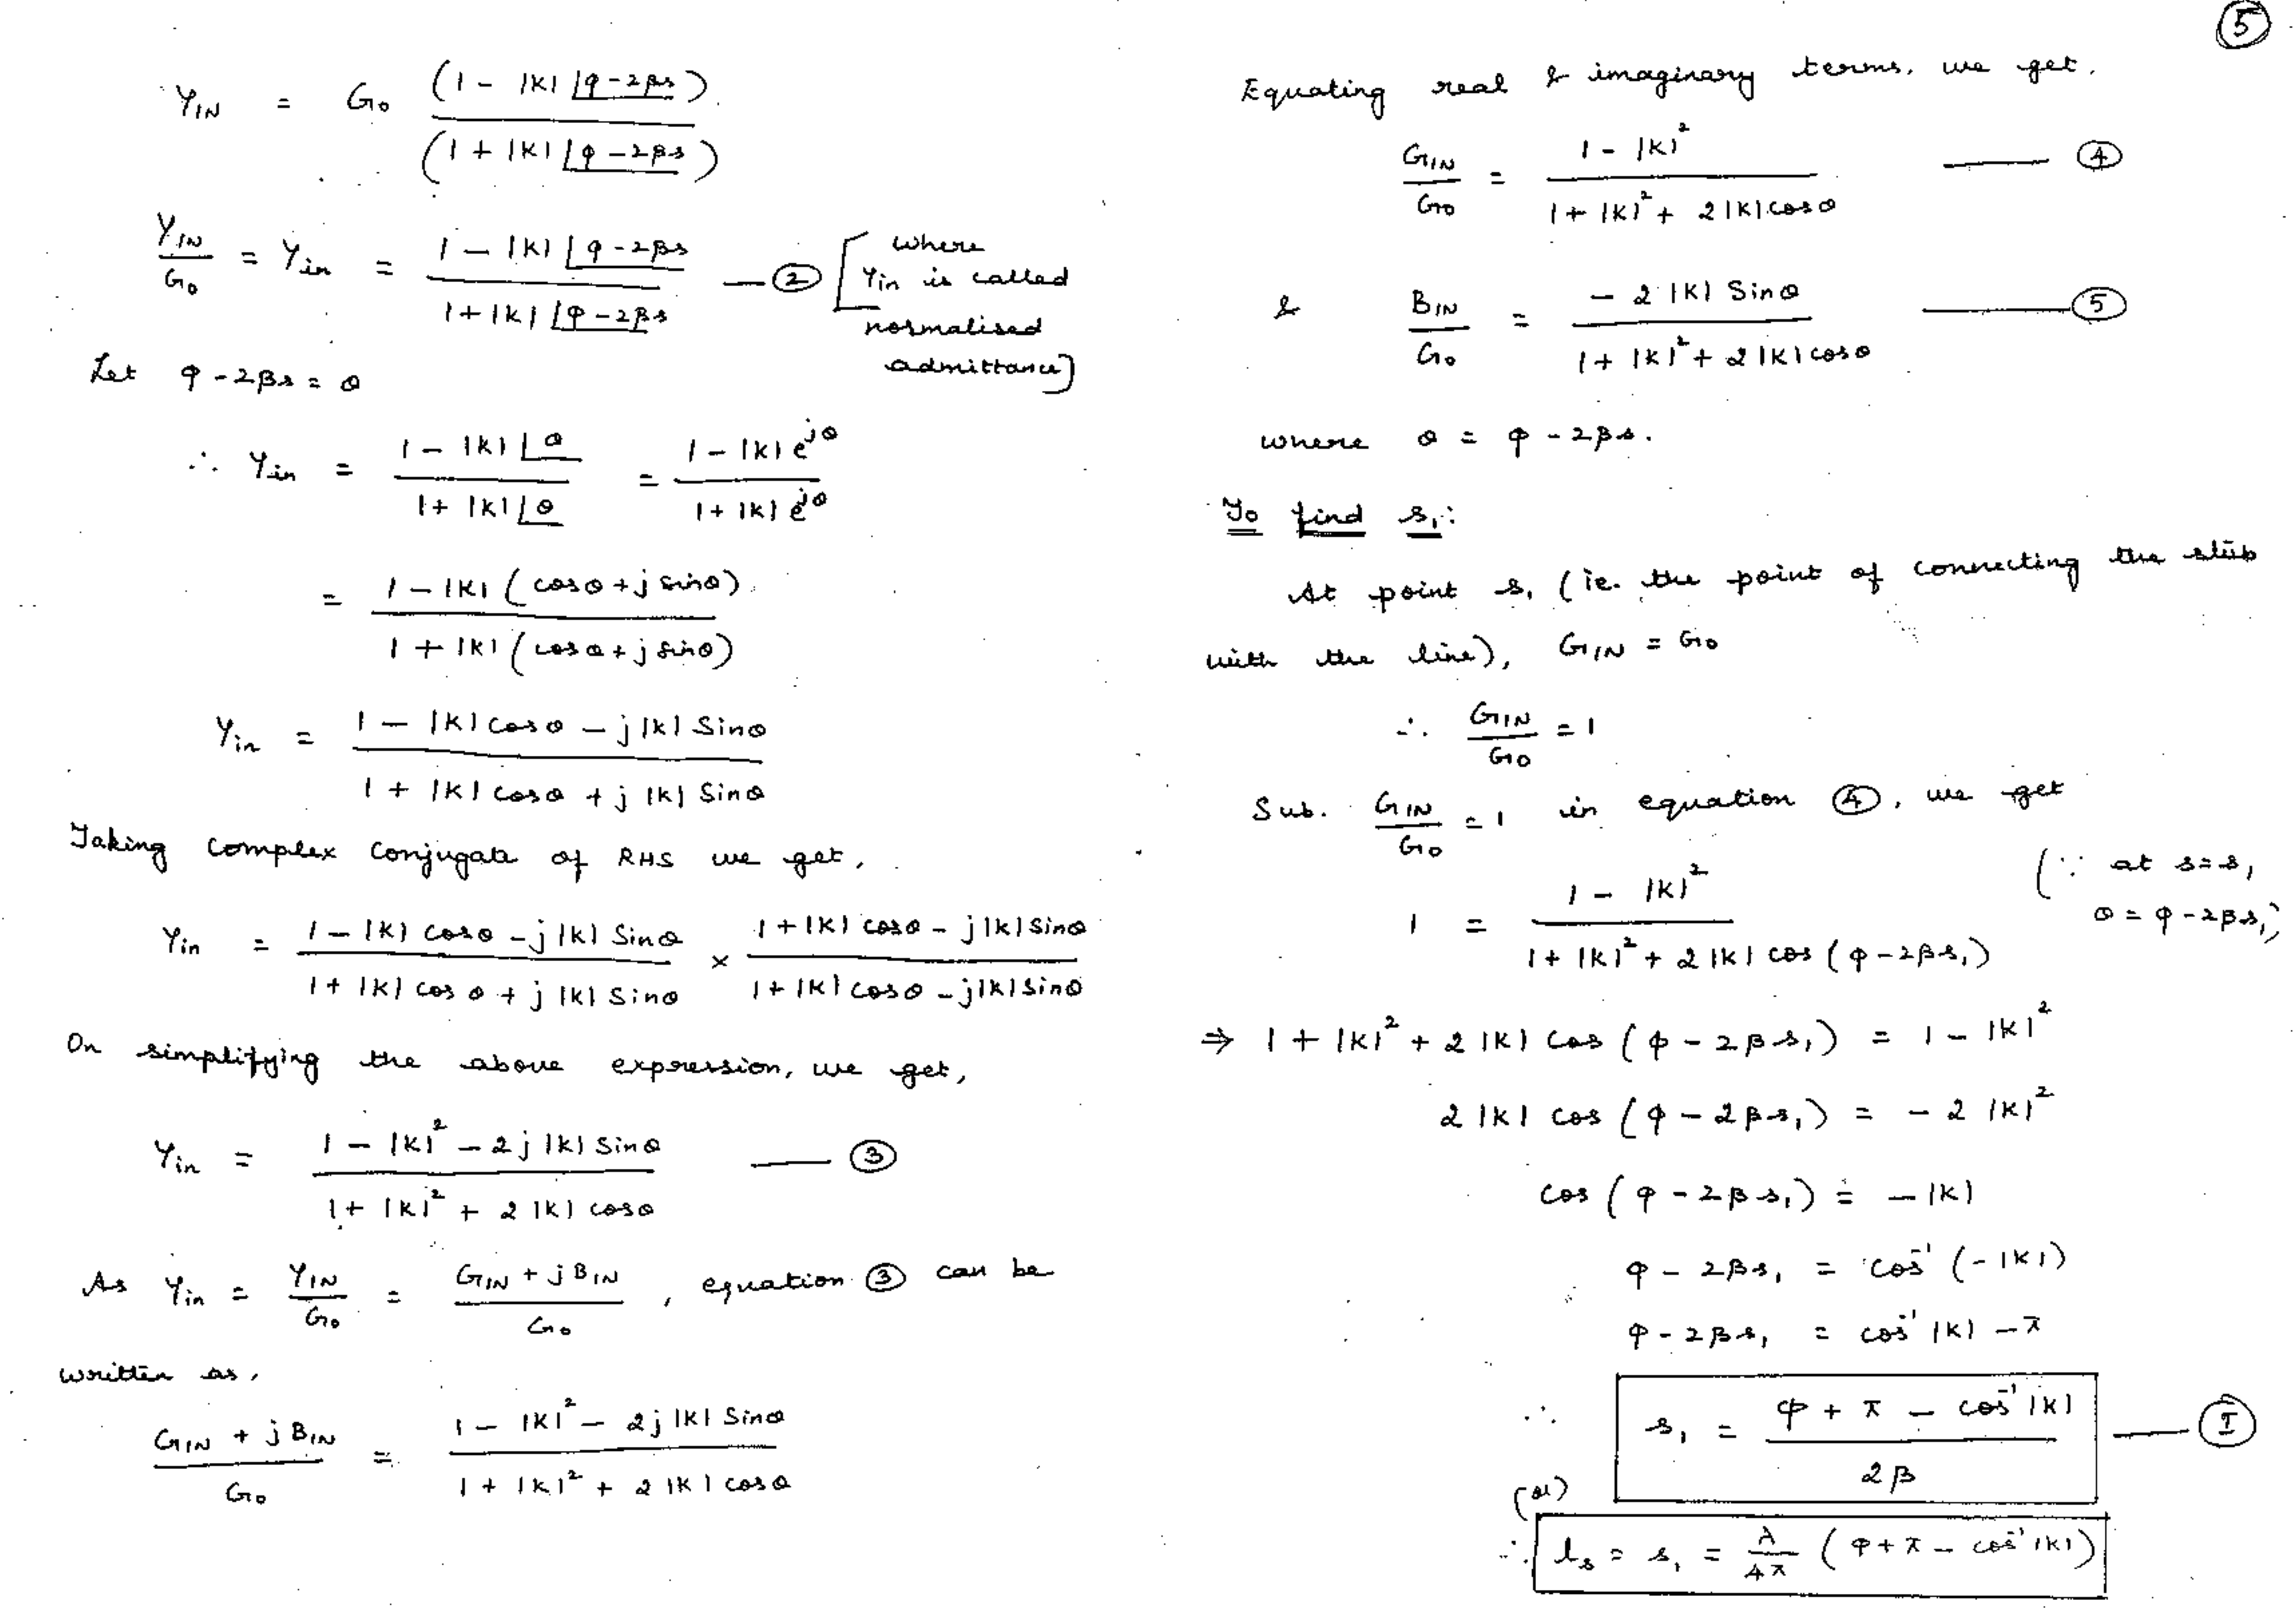 Y_IN = G₀ (1 - |K| ∠φ-2βs) / (1 + |K| ∠φ-2βs)
Y_IN / G₀ = Y_in = (1 - |K| ∠φ-2βs) / (1 + |K| ∠φ-2βs) — ② [where Y_in is called normalised admittance]
Let φ - 2βs = θ
∴ Y_in = (1 - |K| ∠θ) / (1 + |K| ∠θ) = (1 - |K| e^{jθ}) / (1 + |K| e^{jθ})
= (1 - |K| (cosθ + j sinθ)) / (1 + |K| (cosθ + j sinθ))
Y_in = (1 - |K| cosθ - j |K| Sinθ) / (1 + |K| cosθ + j |K| Sinθ)
Taking complex conjugate of RHS we get,
Y_in = (1 - |K| cosθ - j |K| Sinθ) / (1 + |K| cosθ + j |K| Sinθ) × (1 + |K| cosθ - j |K| Sinθ) / (1 + |K| cosθ - j |K| Sinθ)
On simplifying the above expression, we get,
Y_in = (1 - |K|² - 2j |K| Sinθ) / (1 + |K|² + 2 |K| cosθ) — ③
As Y_in = Y_IN / G₀ = (G_IN + j B_IN) / G₀, equation ③ can be
written as,
(G_IN + j B_IN) / G₀ = (1 - |K|² - 2j |K| Sinθ) / (1 + |K|² + 2 |K| cosθ)
⑤
Equating real & imaginary terms, we get,
G_IN / G₀ = (1 - |K|²) / (1 + |K|² + 2 |K| cosθ) — ④
& B_IN / G₀ = (- 2 |K| Sinθ) / (1 + |K|² + 2 |K| cosθ) — ⑤
where θ = φ - 2βs.
To find s₁:
At point s₁ (ie. the point of connecting the stub
with the line), G_IN = G₀
∴ G_IN / G₀ = 1
Sub. G_IN / G₀ = 1 in equation ④, we get
1 = (1 - |K|²) / (1 + |K|² + 2 |K| cos (φ - 2βs₁)) (∵ at s = s₁ θ = φ - 2βs₁)
⇒ 1 + |K|² + 2 |K| cos (φ - 2βs₁) = 1 - |K|²
2 |K| cos (φ - 2βs₁) = - 2 |K|²
cos (φ - 2βs₁) = - |K|
φ - 2βs₁ = cos⁻¹ (-|K|)
φ - 2βs₁ = cos⁻¹ |K| - π
∴ s₁ = (φ + π - cos⁻¹ |K|) / 2β — Ⓘ
(or)
∴ l_s = s₁ = λ / 4π (φ + π - cos⁻¹ |K|)